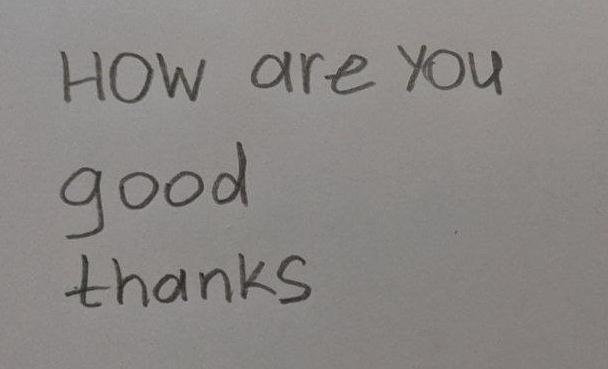 How are you
good
thanks